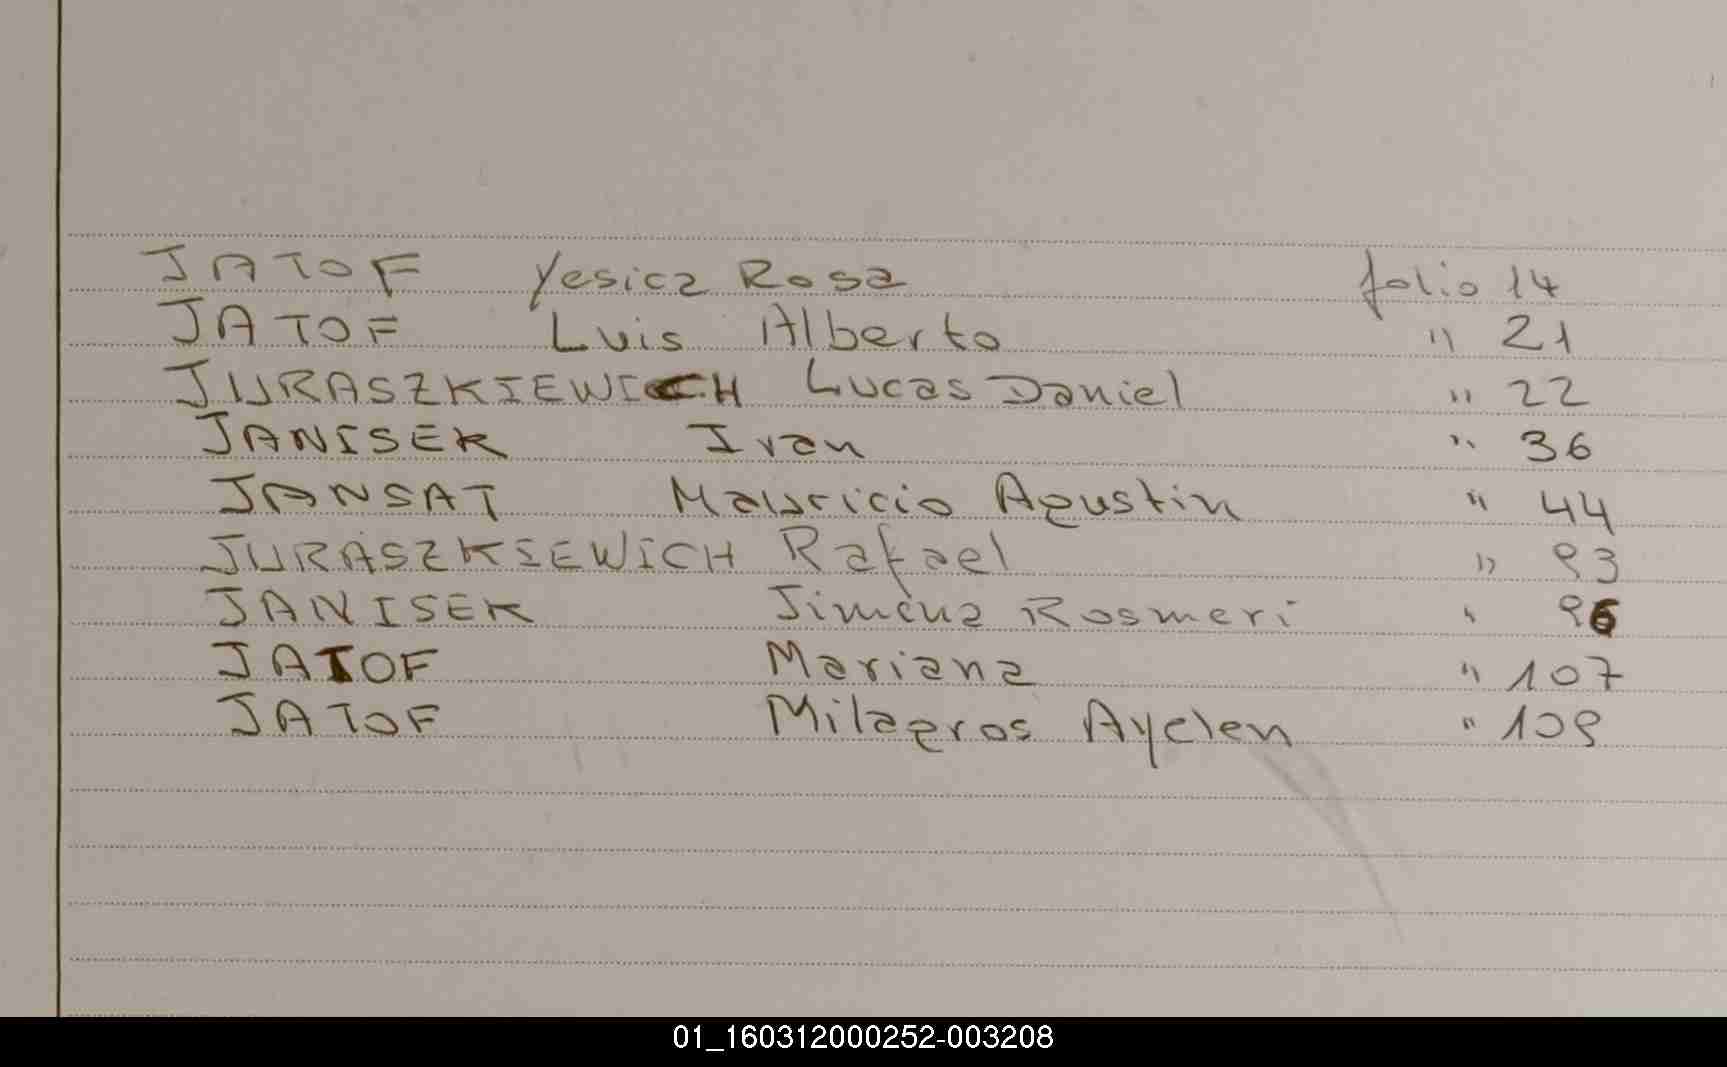 JATOF Yesica Rosa folio 14
JATOF Luis Alberto " 21
JURASZKIEWICH Lucas Daniel " 22
JANISEK Ivan " 36
JANSAT Mauricio Agustin " 44
JURASZKIEWICH Rafael " 93
JANISEK Jimena Rosmeri " 96
JATOF Mariana " 107
JATOF Milagros Ayelen " 109
01_160312000252-003208